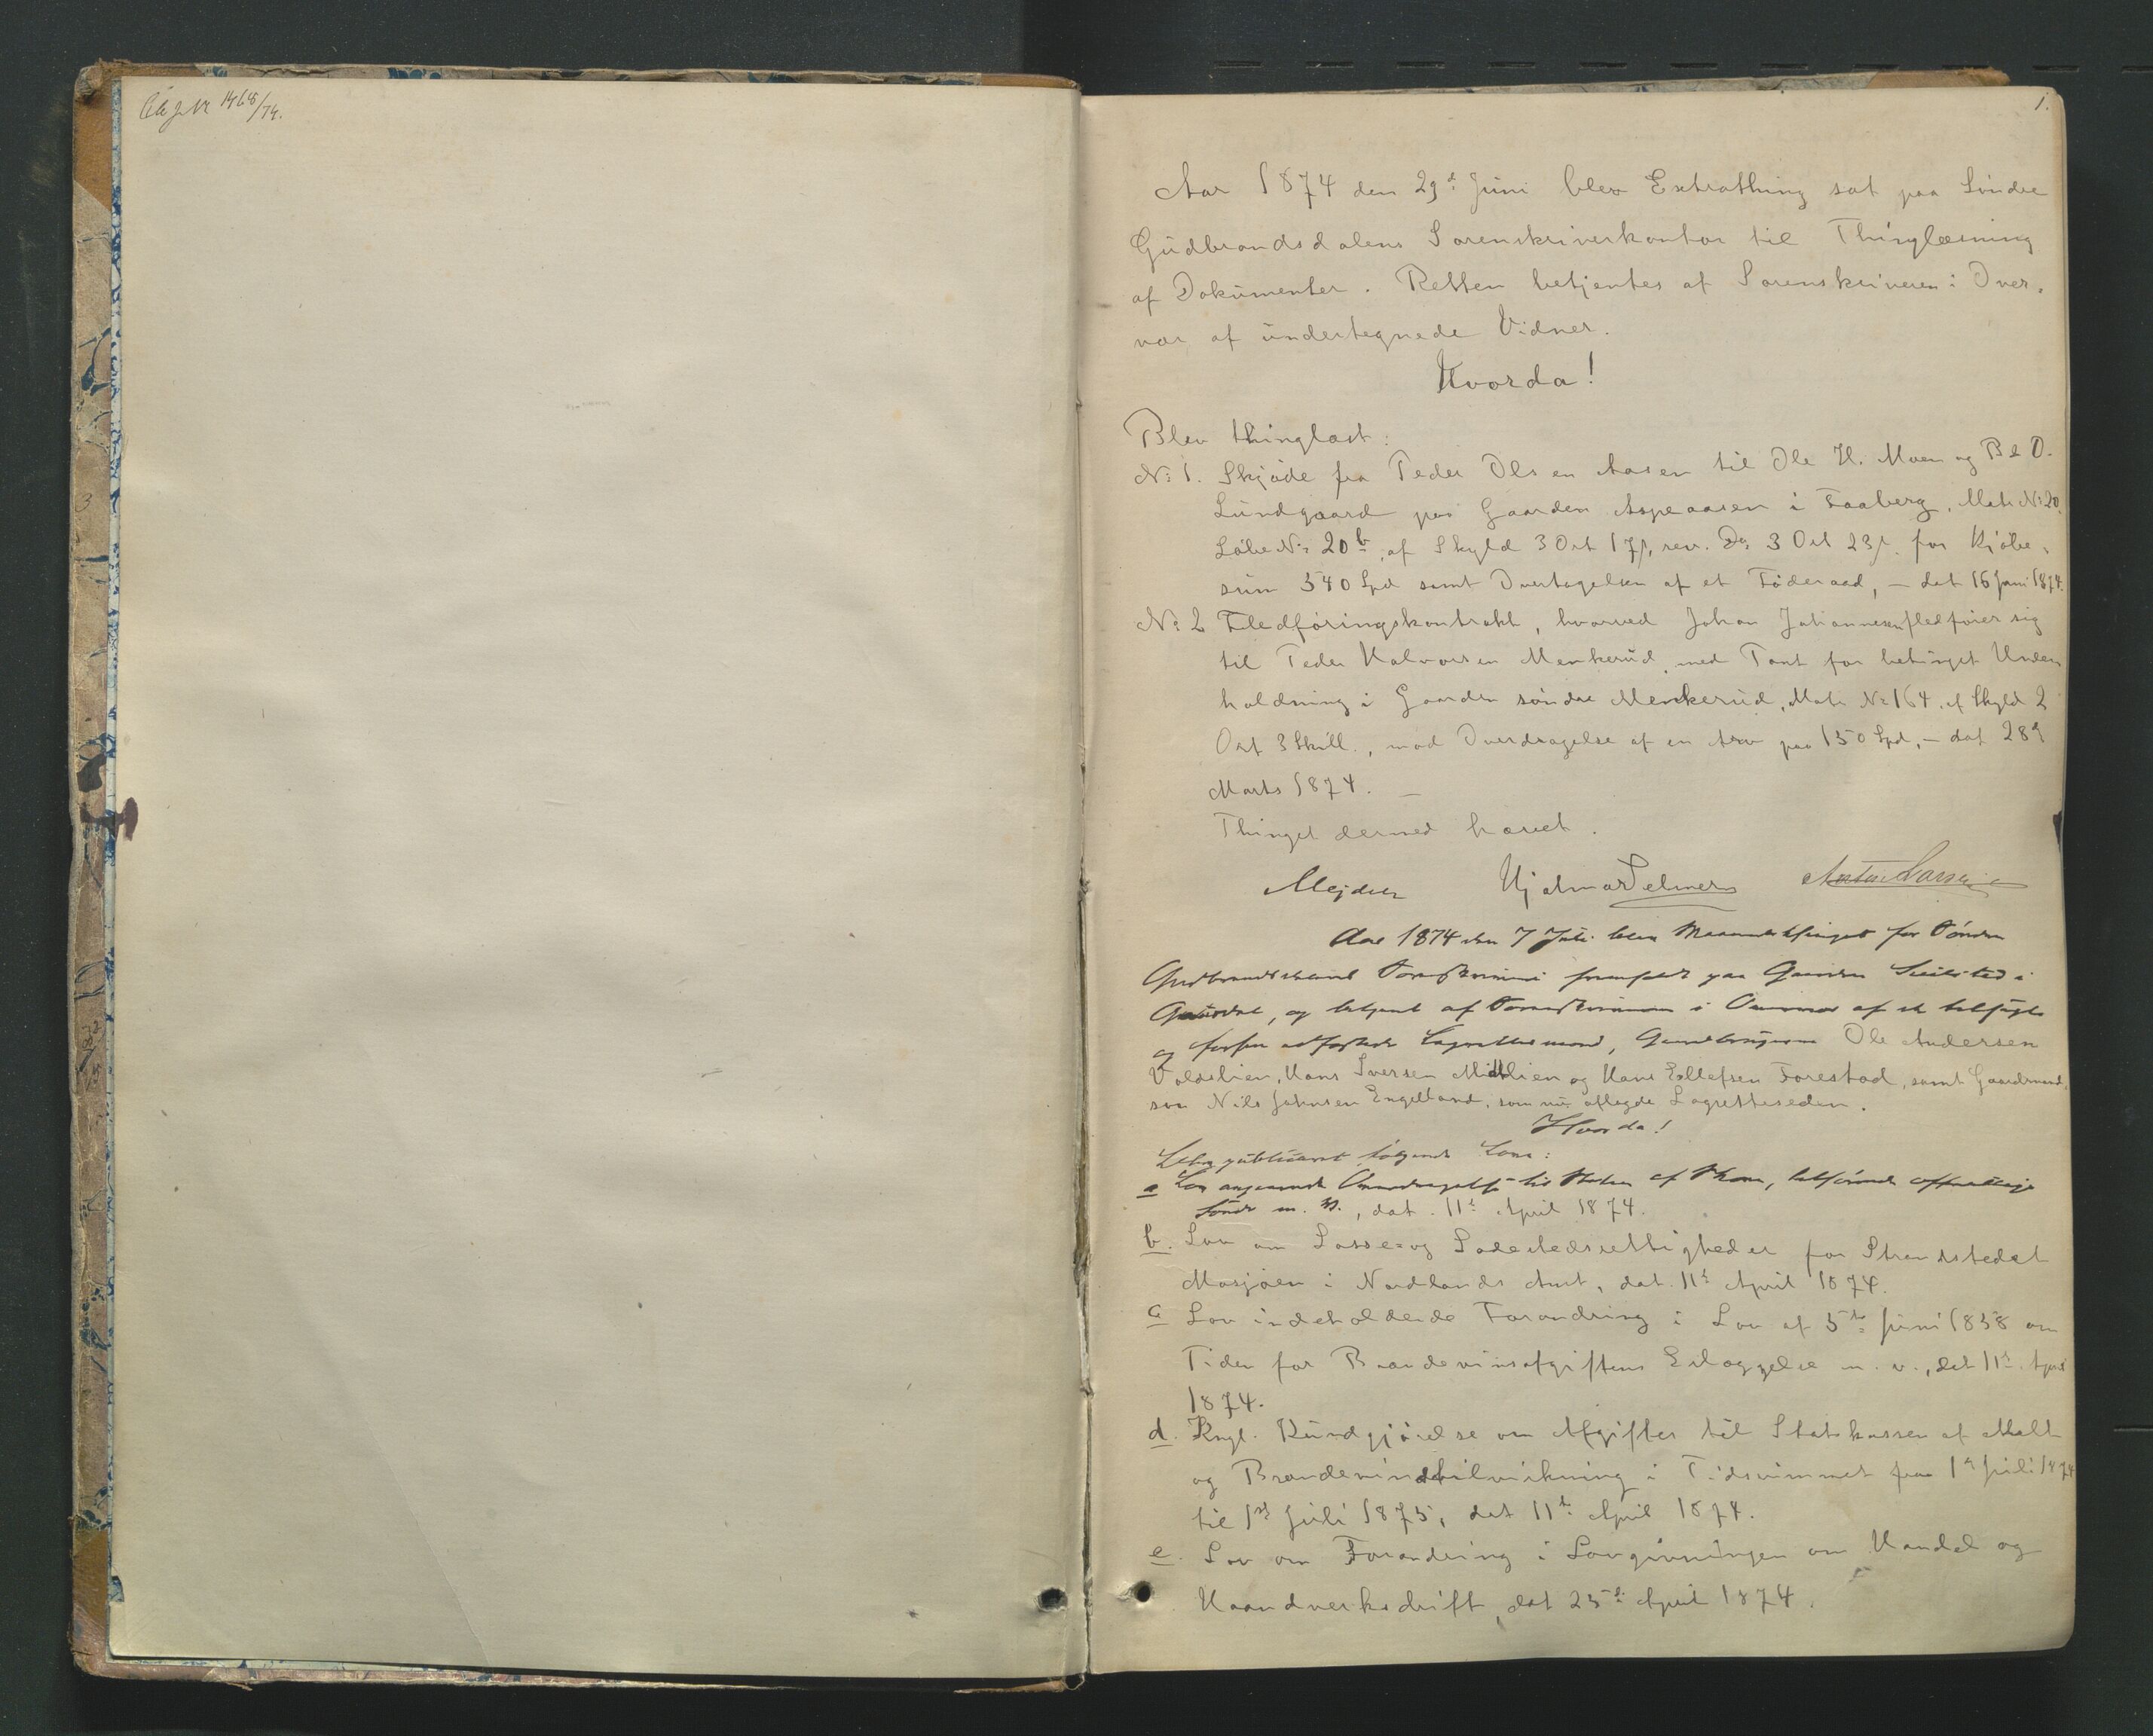 1468/74.
1.
Aar 1874 den 29de Juni blev Extrathing sat paa Søndre
Gudbrandsdalens Sorenskriverkontor til Thinglæsning
af Dokumenter. Retten betjentes af Sorenskriveren i Over-
vær af undertegnede Vidner.
Hvorda!
Blev thinglæst:
No 1. Skjøde fra Peder Olsen Aasen til Ole H. Moen og P. O.
Lundgaard paa Gaarden Aspeaasen i Faaberg, Matr. No 20,
Løbe No 20b, af Skyld 3 Ort 17 s, rev. Do 3 Ort 23 s. for Kjøbe-
sum 540 Spd samt Overtagelsen af et Føderaad, – dat 16 Juni 1874.
No 2 Fledføringskontrakt, hvorved Johan Johannesen fledfører sig
til Peder Halvorsen Menkerud, med Pant for betinget Under
holdning i Gaarden søndre Menkerud, Matr No 164, af Skyld 2
Ort 3 Skill., mod Overdragelse af en Arv paa 150 Spd, – dat 28de
Marts 1874. –
Thinget dermed hævet.
Mejdell Hjalmar Selmer Anton Larsen
Aar 1874 den 7 Juli blev Maanedsthinget for Søndre
Gudbrandsdalens Sorenskriveri fremsat paa Gaarden i
Gausdal, og betjent af Sorenskriveren i Overvær af de
og Lagrettesmænd, Gaardbrugerne Ole Andersen
Voldslien, Hans Iversen Midtlien og Hans Ellefsen Forestad, samt Gaardmand-
søn Nils Johnsen Engelland, som nu aflagde Lagretteseden.
Hvorda!
Blev publiceret følgende Love:
a Lov angaaende Overdragelse til Staten af, tilhørende offentlige
Fonds m. V., dat. 11te April 1874.
b. Lov om Losse- og Ladestedsrettigheder for Strandstedet
Mosjøen i Nordlands Amt, dat. 11te April 1874.
c Lov indeholdende Forandring i Lov af 5te Juni 1858 om
Tiden for Brændevinsafgiftens Erlæggelse m. v., dat 11te April
1874.
d. Kngl. Kundgjørelse om Afgifter til Statskassen af Malt
og Brændevinstilvirkning i Tidsrummet fra 1ste Juli 1874
til 1ste Juli 1875, dat 11te April 1874.
e. Lov om Forandring i Lovgivningen om Handel og
Haandverksdrift, dat 25de April 1874.